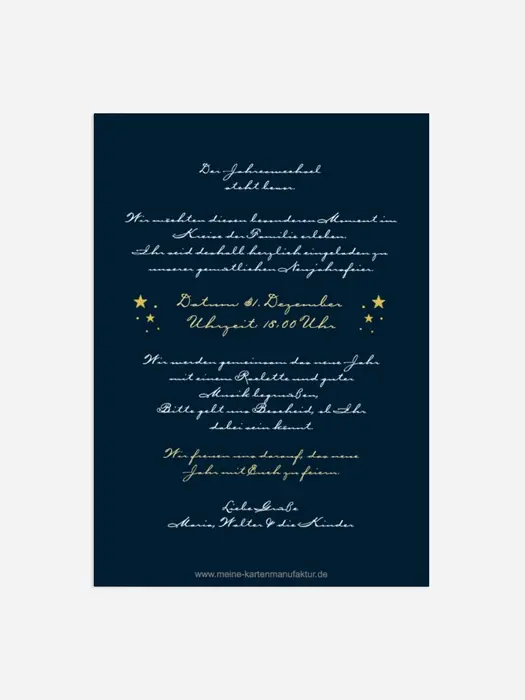 Der Jahreswechsel
steht bevor
Wir möchten diesen besonderen Moment im
Kreise der Familie erleben.
Ihr seid deshalb herzlich eingeladen zu
unserer gemütlichen Neujahrsfeier.
Datum 31. Dezember
Uhrzeit 18.00 Uhr
Wir werden gemeinsam das neue Jahr
mit einem Raclette und guter
Musik begrüßen,
Bitte gebt uns Bescheid, ob Ihr
dabei sein könnt.
Wir freuen uns darauf, das neue
Jahr mit Euch zu feiern.
Liebe Grüße
Maria, Walter & die Kinder
www.meine-kartenmanufaktur.de